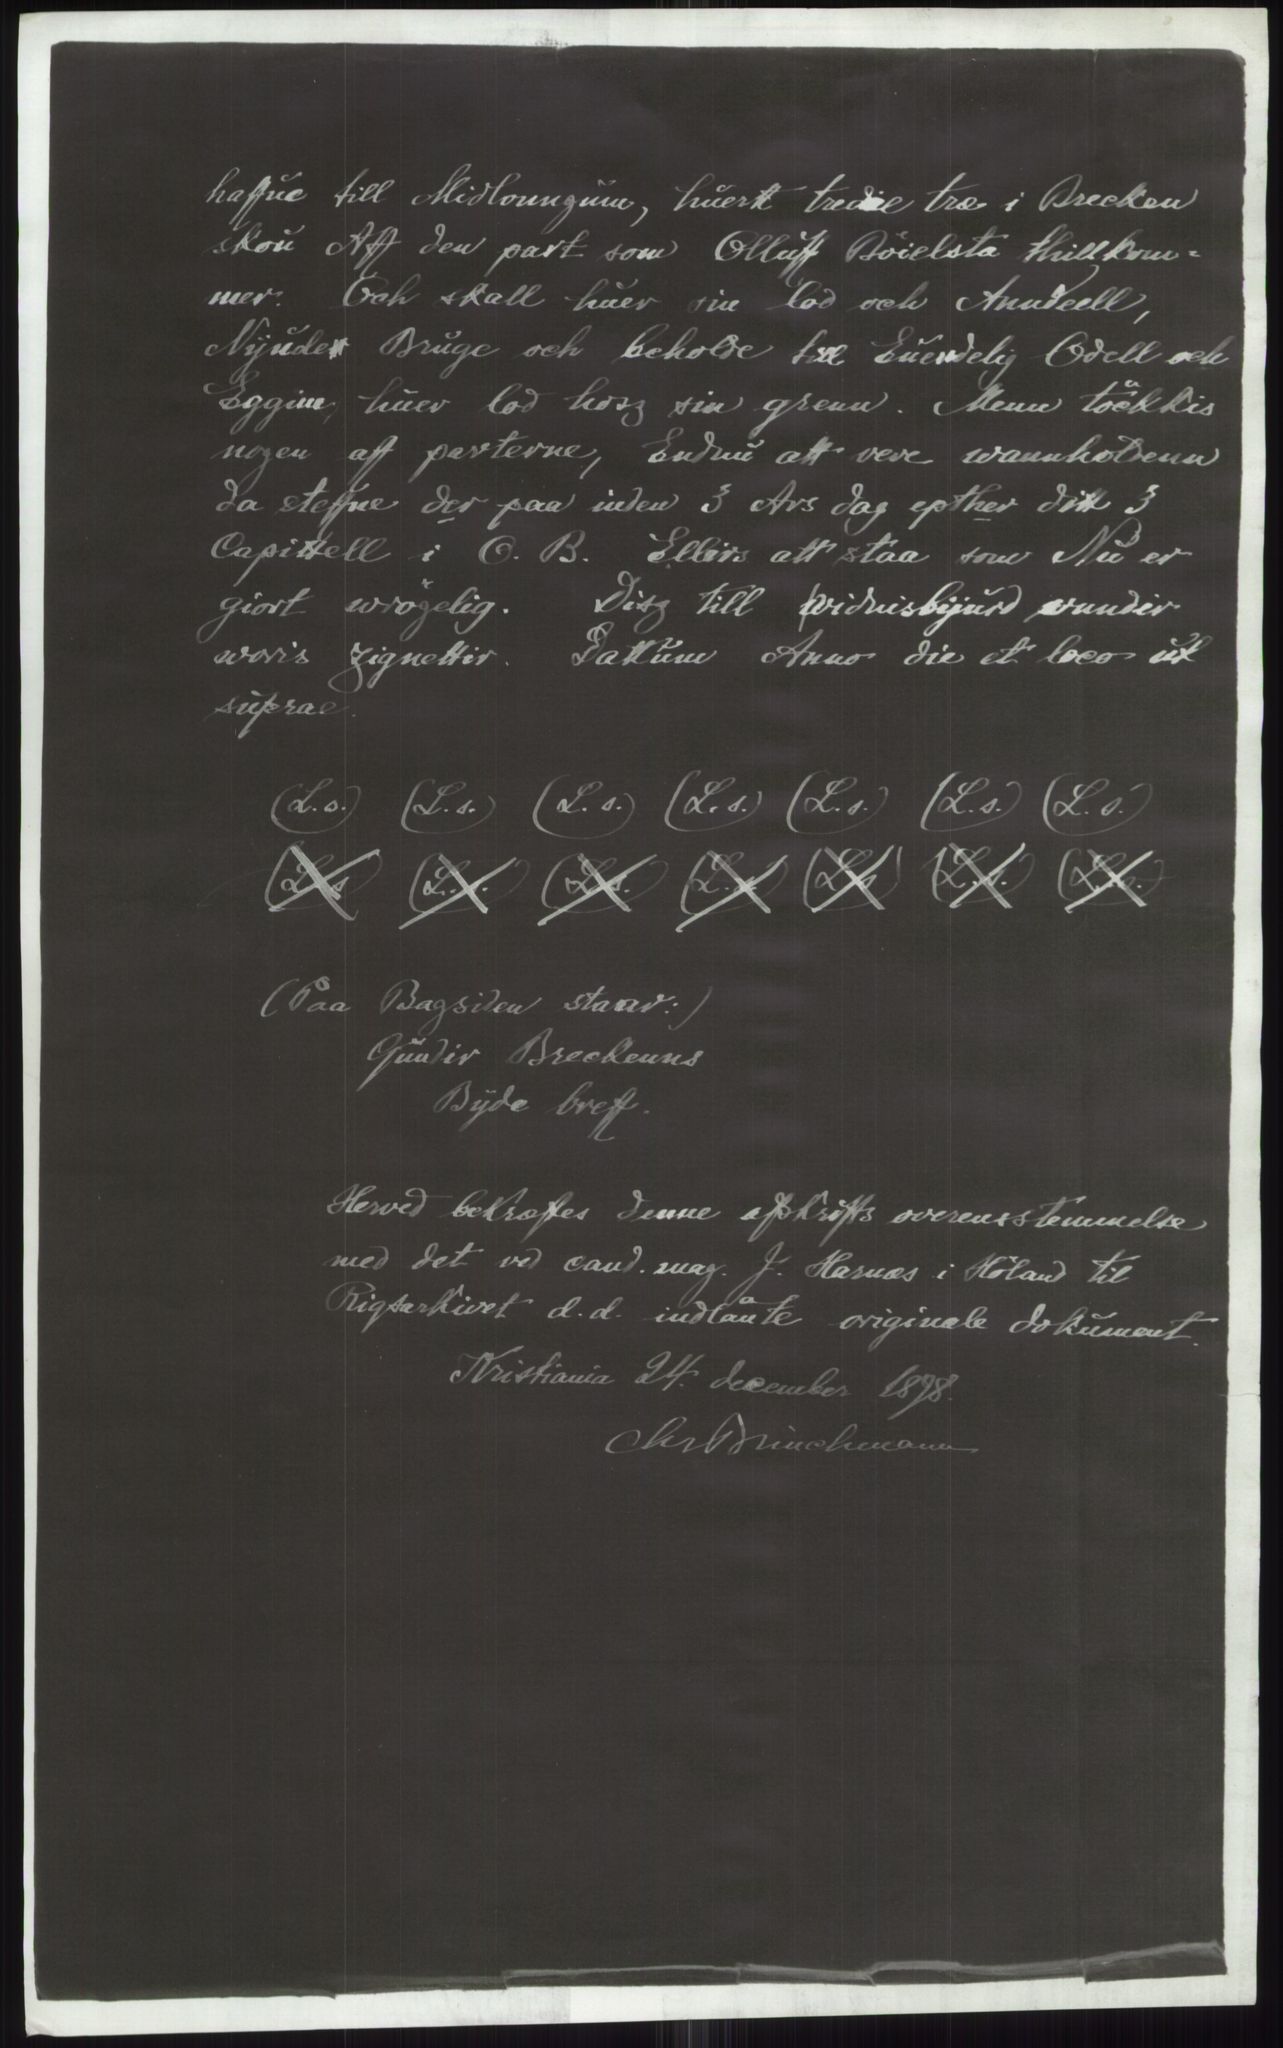 haffue till Midlonngüm, huertt tredie træ i Brecken
skou Aff den part som Olluff Böielsta thillkom=
mer. Och skall huer sin lod och Anndeell,
Nÿude, Bruge och beholde till Euerdelig Odell och
Eggim, huer lod hosz sin grenn. Menn töckkis
nogen aff parterne, Endnu att vere wannholdenn
da steffne der paa inden 3 Ars dag epther ditt 3
Capittell i O. B. Ellirs att staa som Nu er
giort wrögelig. Disz till widnisbÿurd wnndir
woris zignettir. Dattum Anno die et loco ut
suprae.
(L.s.) (L.s.) (L.s.) (L.s.) (L.s.) (L.s.) (L.s.)
(L.s.) (L.s.) (L.s.) (L.s.) (L.s.) (L.s.) (L.s.)
(Paa Bagsiden staar:)
Gündir Breckenns
Bÿde breff.
Herved bekræftes denne afskrifts overensstemmelse
med det ved cand. mag. J. Harnæs i Höland til
Rigsarkivet d.d. indlånte originale dokument.
Kristiania 24. december 1898.
Chr Brinchmann